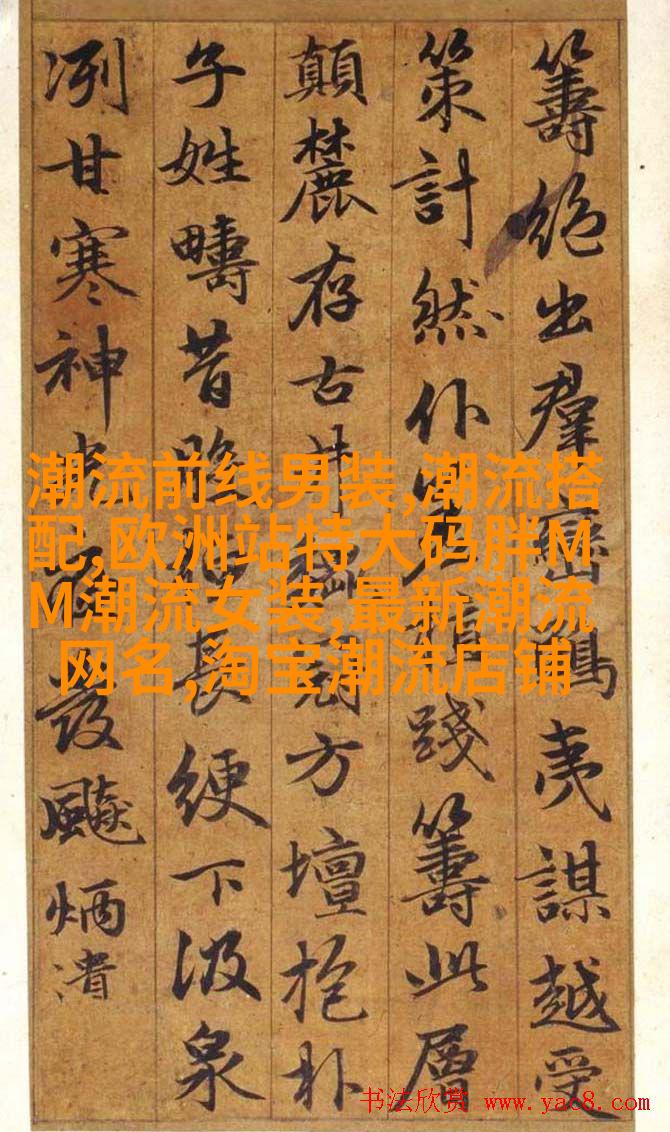 籌絕出羣夷謀越受
策計然仆踐籌此層
顛麓存古井方壇抱朴
子姓疇昔長綆下汲泉
冽甘寒神發飈炳潰
潮流前线男装,潮流搭
配,欧洲站特大码胖M
M潮流女装,最新潮流
网名,淘宝潮流店铺
书法欣赏 www.yac8.com